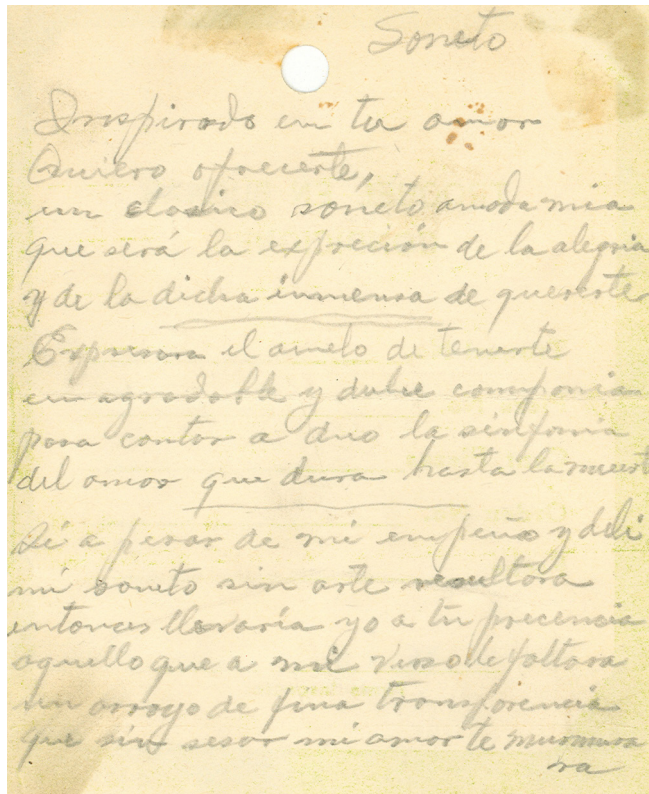 Soneto
Inspirado en tu amor
Quiero ofrecerte,
un clasico soneto amada mia
que será la expreción de la alegria
y de la dicha inmensa de quererte
Expresara el anelo de tenerte
en agradable y dulce compania
para contar a duo la sinfonia
del amor que dura hasta la muert
Si a pesar de mi empeño y deli
mi soneto sin arte resultara
entonces llevaría yo a tu precencia
aquello que a mi verso le faltara
un arroyo de fina transparencia
que sin sesar mi amor te murmura
ra